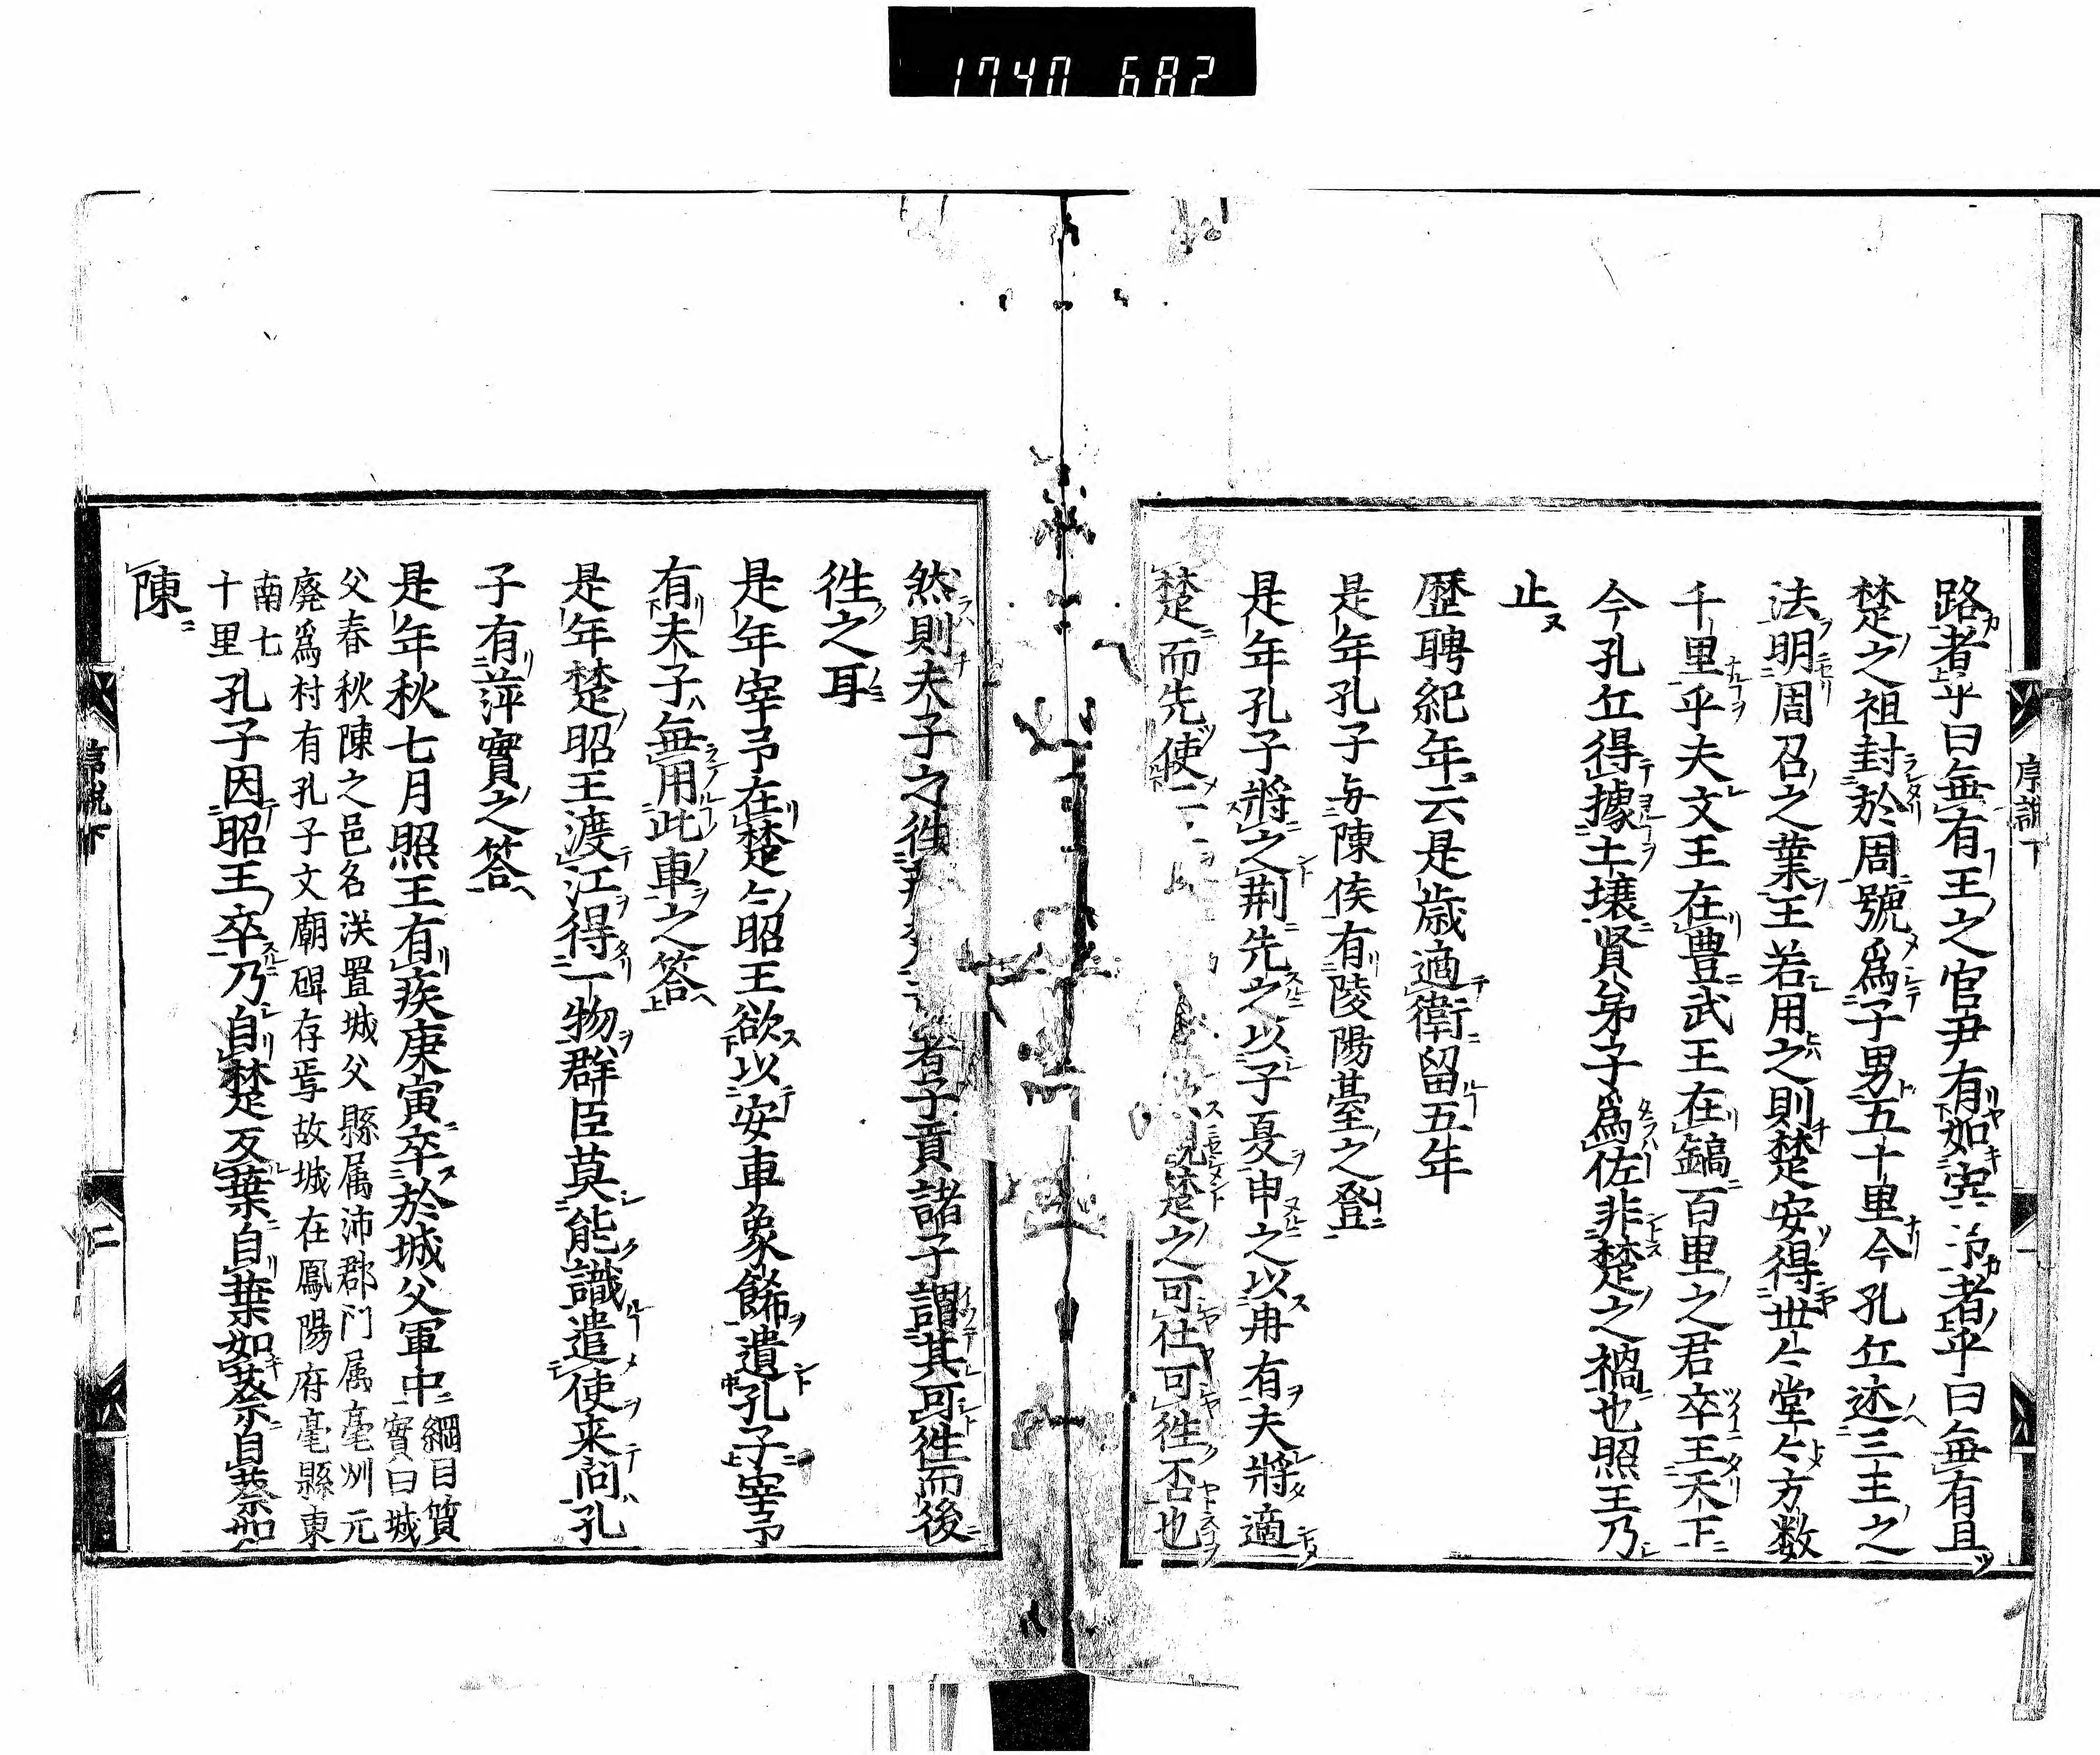 1740 682
序説下
路者乎曰無有王之官尹有如宰予者乎曰無有且
楚之祖封於周號爲子男五十里今孔丘述三王之
法明周召之業王若用之則楚安得世々堂々方数
千里乎夫文王在豊武王在鎬百里之君卒王天下
今孔丘得據土壌賢弟子爲佐非楚之禍也照王乃
止
歴聘紀年云是歳適衛留五年
是年孔子与陳侯有陵陽臺之登
是年孔子將之荆先之以子夏申之以冉有夫將適
楚而先使二 楚之可仕可徃否也
然則夫子之徃 者子貢諸子謂其可徃而後
徃之耳
是年宰予在楚々昭王欲以安車象餙遺孔子宰予
有夫子無用此車之答
是年楚昭王渡江得一物群臣莫能識遣使来問孔
子有萍實之答
是年秋七月照王有疾庚寅卒於城父軍中
綱目質
實曰城
父春秋陳之邑名漢置城父縣属沛郡門属亳州元
廃爲村有孔子文廟碑存焉故城在鳳陽府亳縣東
南七
十里
孔子因昭王卒乃自楚反葉自葉如蔡自蔡如
陳
序説下
二